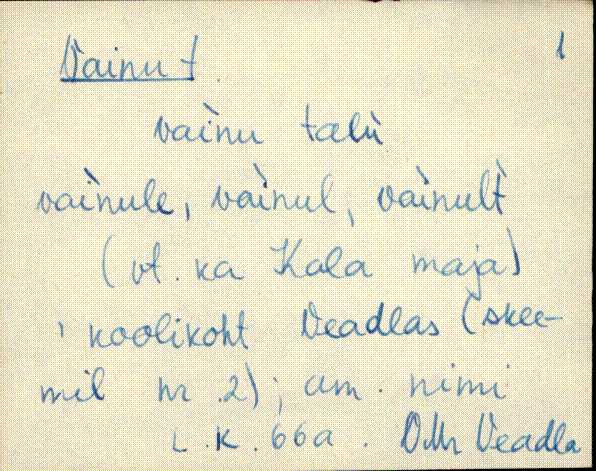 Vainu t. 1
vaìnu talù
vaìnule, vaìnul, vaìnult
(vt. ka Kala maja)
' koolikoht Veadlas (skee-
mil nr 2); am. nimi
L.K. 66a. Veadla